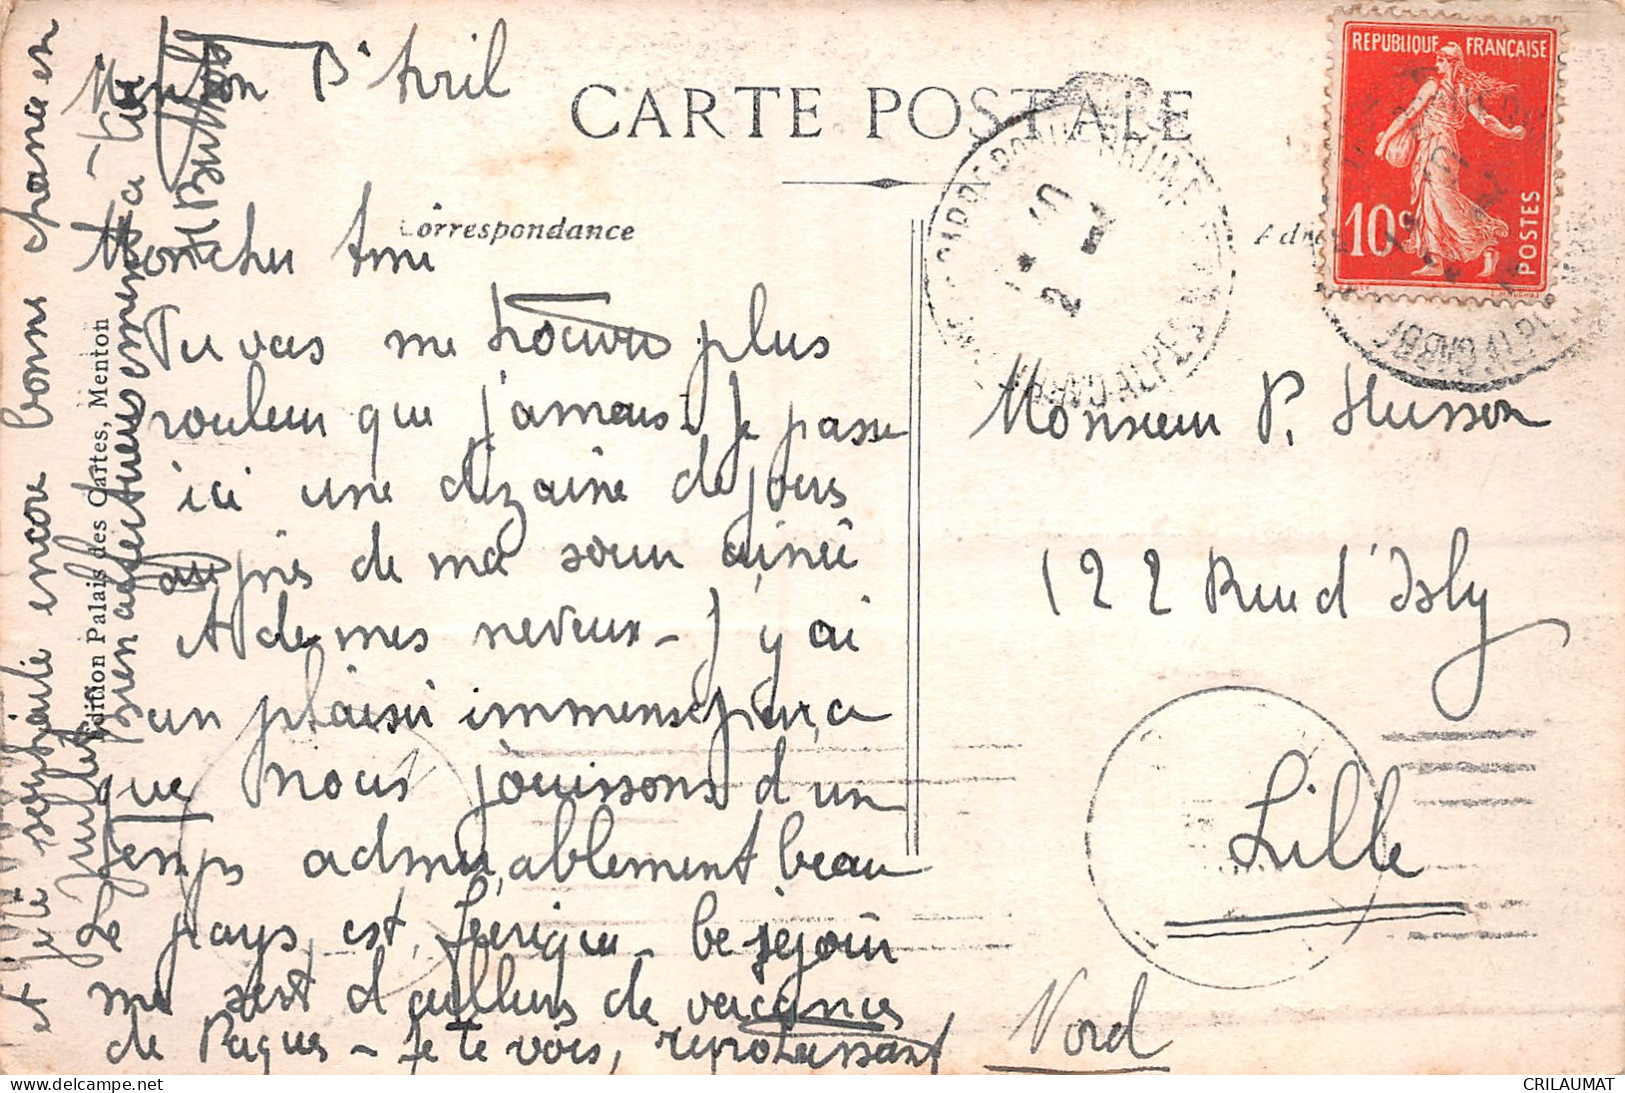 Menton 1er Avril
CARTE POSTALE
Correspondance
REPUBLIQUE FRANÇAISE
10c
POSTES
Mon cher Ami
Tu vas me trouver plus
rouleur que jamais. Je passe
ici une dizaine de jours
auprès de ma sœur ainée
et de mes neveux - J'y ai
un plaisir immense parce
que nous jouissons d'un
temps admirablement beau
Le pays est féerique - Ce séjour
me sert d'ailleurs de vacances
de Paques - Je te vois,
et je te souhaite encore bonne chance en
Juillet
Bien affectueusement à toi
Edition Palais des Cartes, Menton
Monsieur P. Husson
122 Rue d'Isly
Lille
Nord
CRILAUMAT